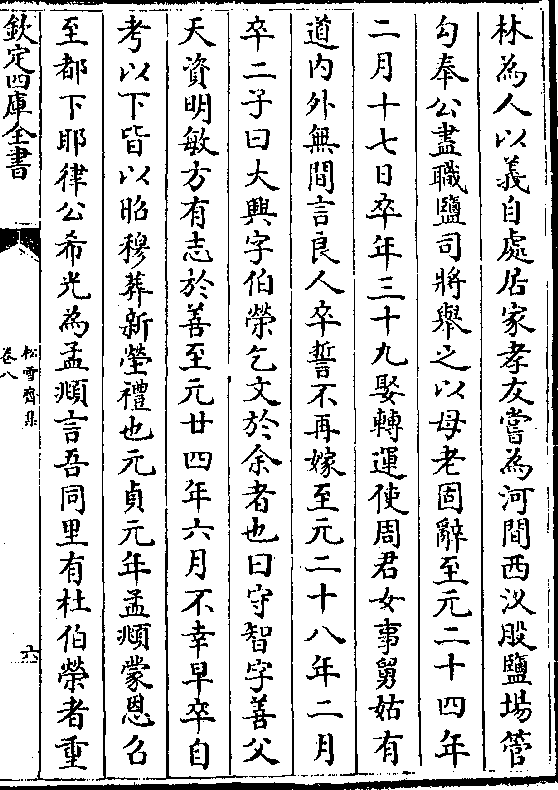 林為人以義自處居家孝友嘗為河間西汊股鹽場管
勾奉公盡職鹽司將舉之以母老固辭至元二十四年
二月十七日卒年三十九娶轉運使周君女事舅姑有
道内外無間言良人卒誓不再嫁至元二十八年二月
卒二子曰大興字伯榮乞文於余者也曰守智字善父
天資明敏方有志於善至元廿四年六月不幸早卒自
考以下皆以昭穆葬新塋禮也元貞元年孟頫蒙恩召
至都下耶律公希光為孟頫言吾同里有杜伯榮者重
欽定四庫全書
松雪齋集
卷八
六